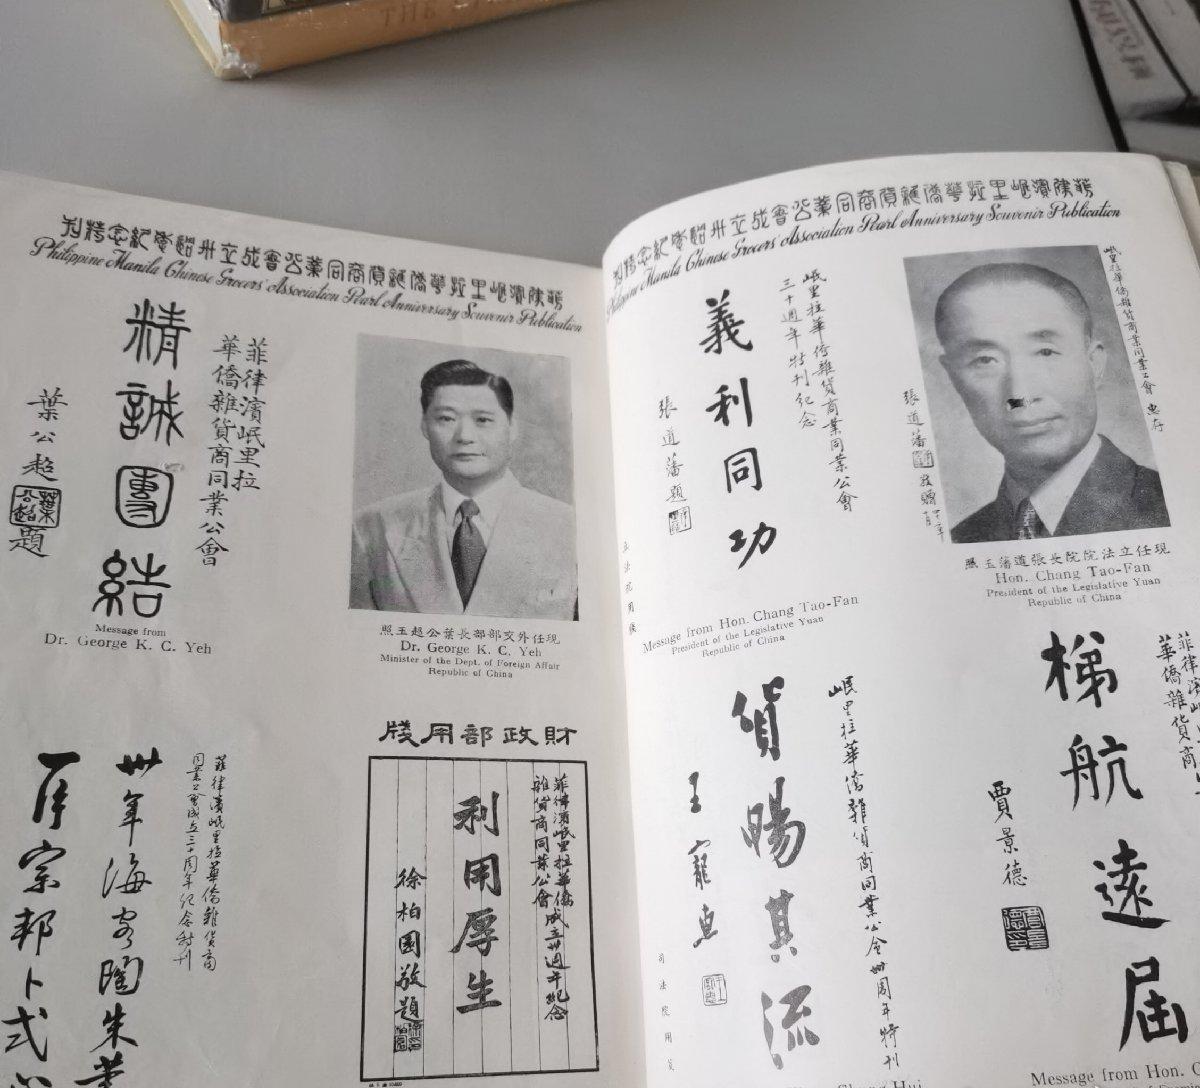 THE
Philippine Manila Chinese Grocers' Association Pearl Anniversary Souvenir Publication
菲律濱岷里拉
華僑雜貨商同業公會
精誠團結
葉公超
題
Message from
Dr. George K. C. Yeh
照玉超公葉長部部交外任現
Dr. George K. C. Yeh
Minister of the Dept. of Foreign Affair
Republic of China
菲律濱岷里拉華僑雜貨商
同業公會成立三十周年紀念特刊
卅年海客陶朱業
宗邦卜式
牋用部政財
菲律濱岷里拉華僑
雜貨商同業公會成立卅週年紀念
利用厚生
徐柏園敬題
Philippine Manila Chinese Grocers' Association Pearl Anniversary Souvenir Publication
岷里拉華僑雜貨商業同業公會 惠存
張道藩
敬贈
照玉藩道張長院院法立任現
Hon. Chang Tao-Fan
President of the Legislative Yuan
Republic of China
岷里拉華僑雜貨商業同業公會
三十週年特刊紀念
義利同功
張道藩題
立法院用牋
Message from Hon. Chang Tao-Fan
President of the Legislative Yuan
Republic of China
菲律濱岷
華僑雜貨商
梯航遠屆
賈景德
賈景德印
Message from Hon.
岷里拉華僑雜貨商同業公會卅周年特刊
貨暢其流
王寵惠
司法院用